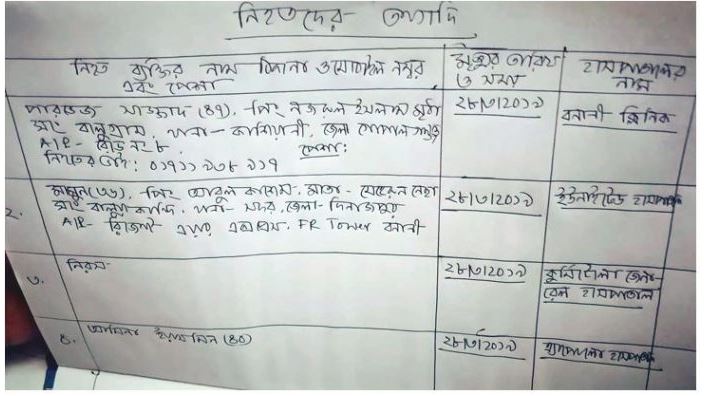 নিহতদের তথ্যাদি
নিহত ব্যক্তির নাম ঠিকানা ও মোবাইল নম্বর
এবং পেশা
মৃত্যুর তারিখ
ও সময়
হাসপাতালের
নাম
পারভেজ সাজ্জাদ (৪৭), পিং নজরুল ইসলাম মৃধা
সাং বালুগ্রাম, থানা- কাশিয়ানী, জেলা গোপালগঞ্জ
A/P- রোড নং ৮, পেশা:
২৮/৩/২০১৯
বনানী ক্লিনিক
২. মামুন (৩৬), পিং আবুল কাশেম, মাতা-
সাং বালুয়াকান্দি, থানা- সদর, জেলা- দিনাজপুর
A/P- এয়ার FR Tower বনানী
২৮/৩/২০১৯
ইউনাইটেড হাসপাতাল
৩. নিরস
২৮/৩/২০১৯
কুর্মিটোলা জেনা-
রেল হাসপাতাল
৪. আমিনা ইয়াসমিন (৪০)
২৮/৩/২০১৯
এ্যাপোলো হাসপাতাল